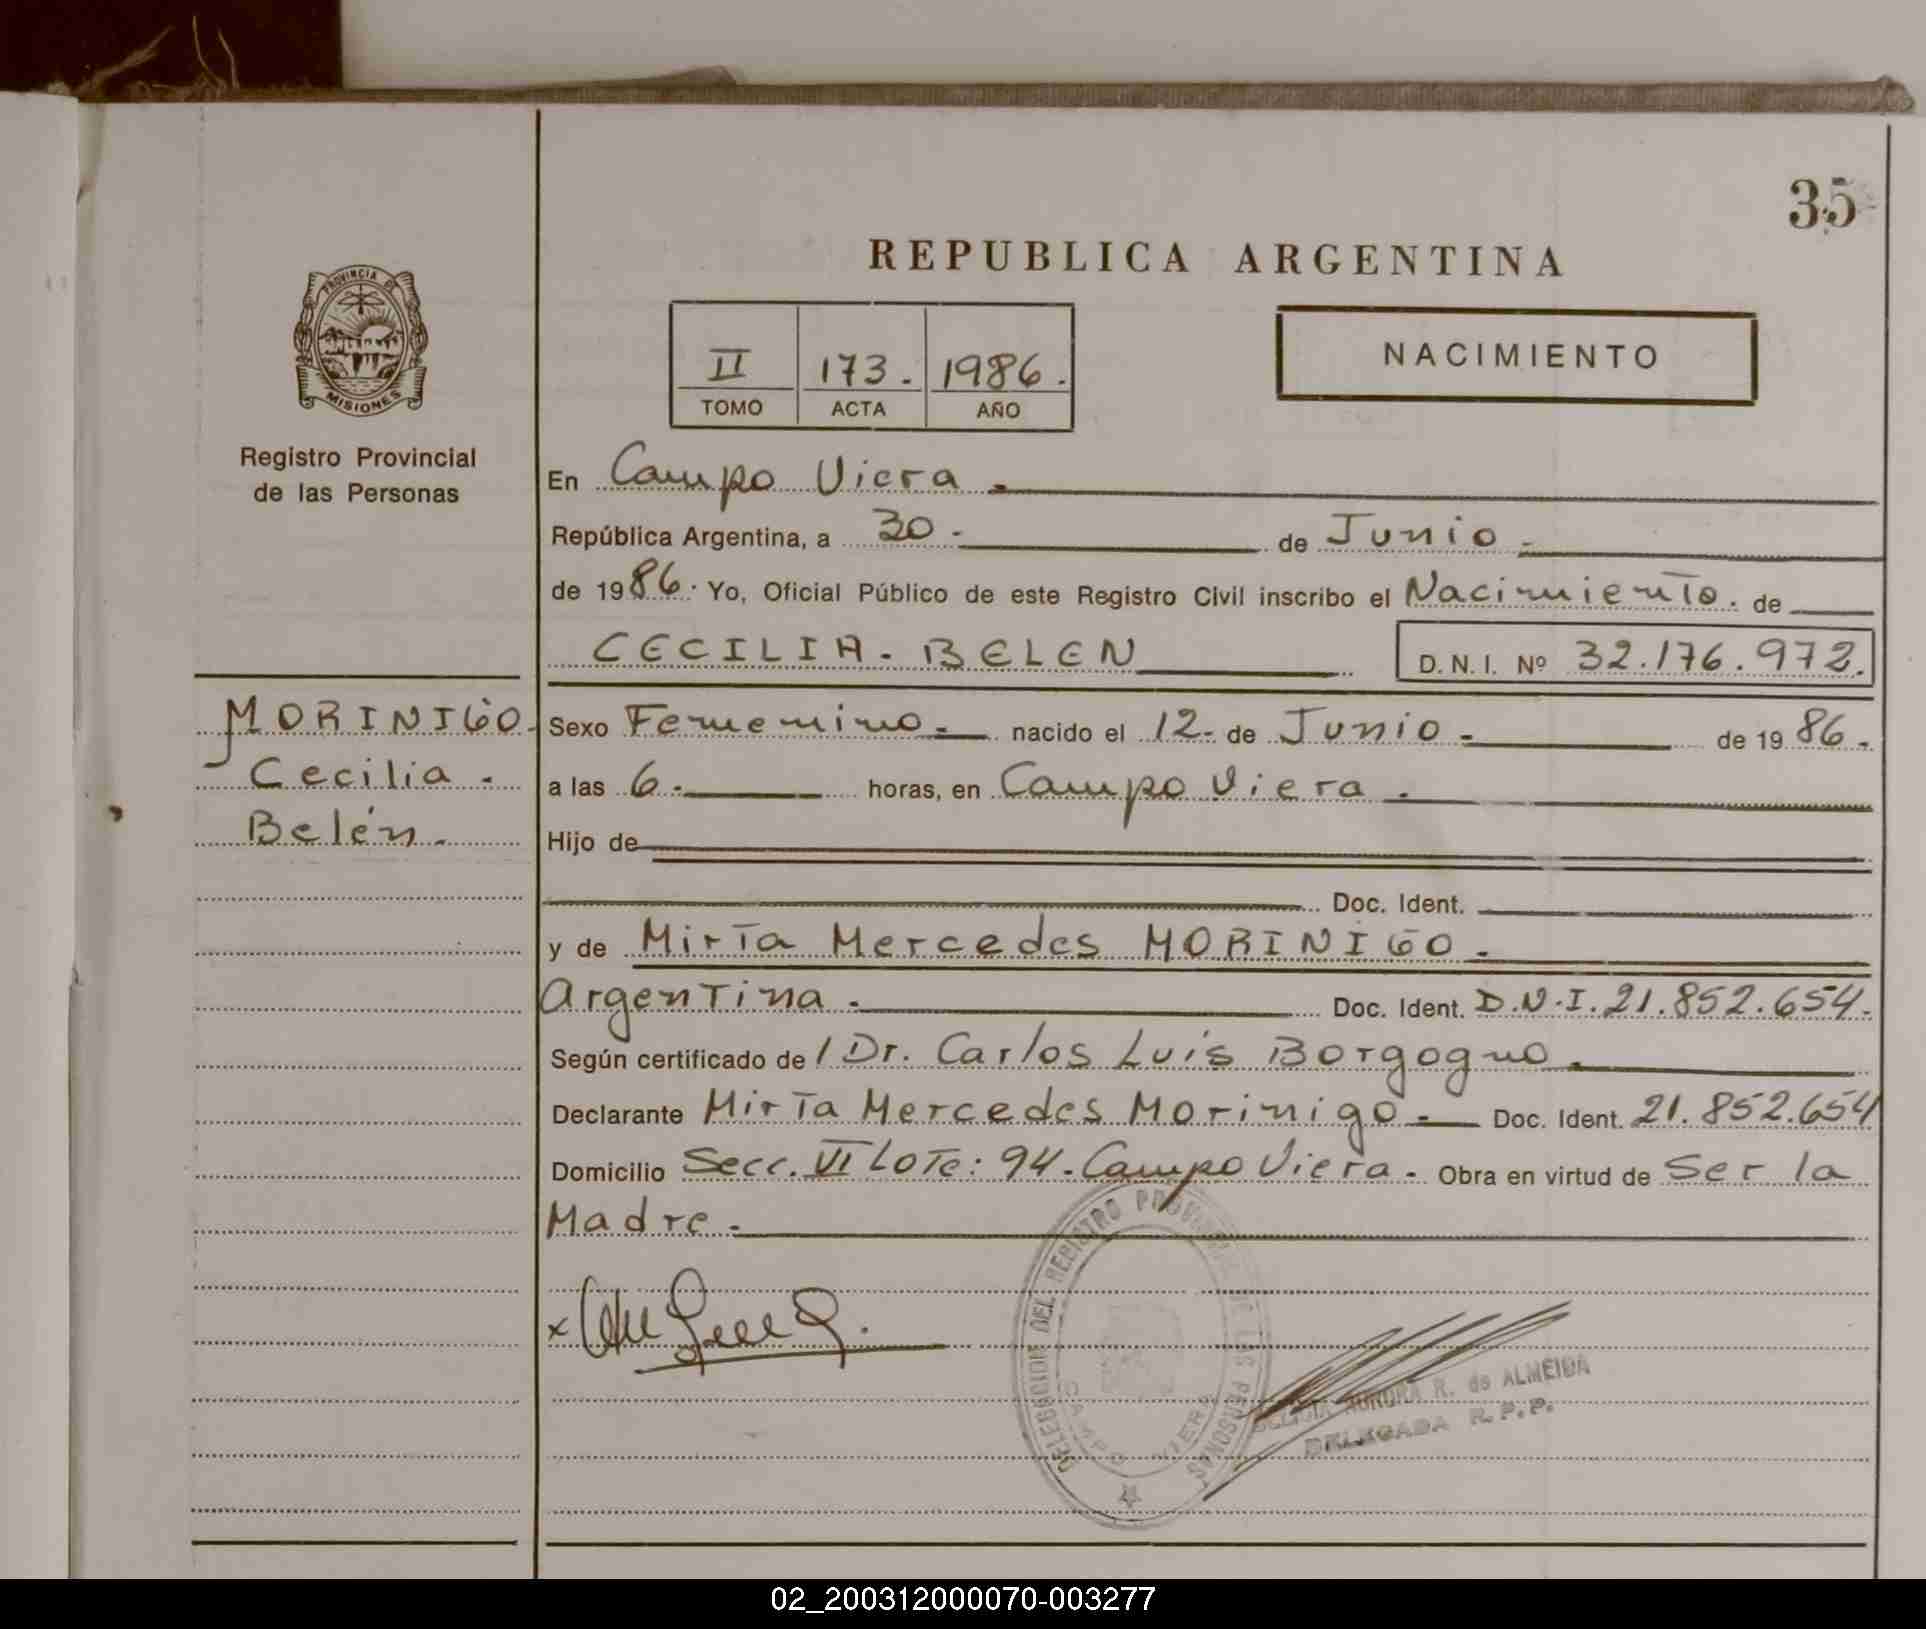 35
REPUBLICA ARGENTINA
PROVINCIA DE
MISIONES
Registro Provincial
de las Personas
II 173. 1986.
TOMO ACTA AÑO
NACIMIENTO
En Campo Viera.
República Argentina, a 30. de Junio.
de 1986. Yo, Oficial Público de este Registro Civil inscribo el Nacimiento. de
CECILIA. BELEN D.N.I. Nº 32.176.972.
MORINIGO.
Cecilia.
Belén.
Sexo Femenino. nacido el 12. de Junio. de 1986.
a las 6. horas, en Campo Viera.
Hijo de
Doc. Ident.
y de Mirta Mercedes MORINIGO.
Argentina. Doc. Ident. D.N.I. 21.852.654.
Según certificado de / Dr. Carlos Luis Borgogno.
Declarante Mirta Mercedes Morinigo. Doc. Ident. 21.852.654
Domicilio Secc. VI Lote: 94. Campo Viera. Obra en virtud de Ser la
Madre.
x
DELEGACION DEL REGISTRO PROVINCIAL DE LAS PERSONAS
CAMPO VIERA
AURORA R. de ALMEIDA
DELEGADA R.P.P.
02_200312000070-003277